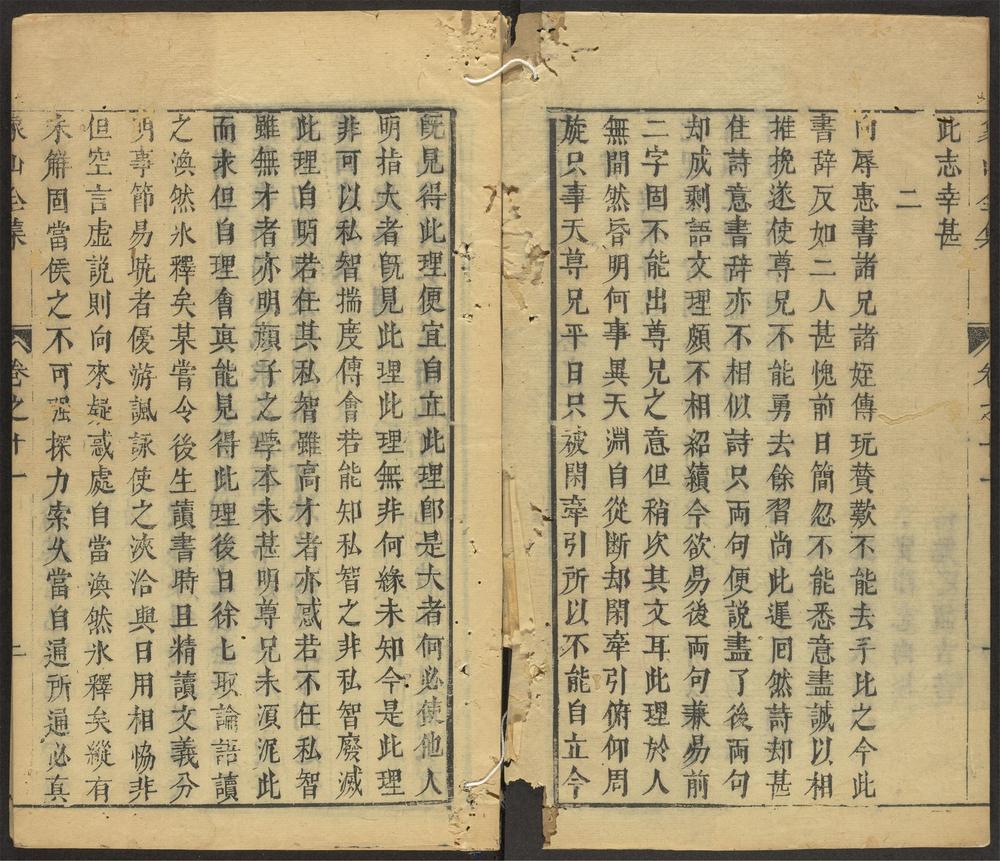 此志幸甚
二
向辱惠書諸兄諸姪傳玩贊歎不能去手比之今此
書辭反如二人甚愧前日簡忽不能悉意盡誠以相
推挽遂使尊兄不能勇去餘習尚此遲囘然詩却甚
佳詩意書辭亦不相似詩只两句便説盡了後两句
却成剩語文理頗不相紹續今欲易後两句兼易前
二字固不能出尊兄之意但稍次其文耳此理於人
無間然昏明何事異天淵自從断却閑牽引俯仰周
旋只事天尊兄平日只被閑牽引所以不能自立今
旣見得此理便宜自立此理卽是大者何必使他人
明指大者旣見此理此理無非何緣未知今是此理
非可以私智揣度傅會若能知私智之非私智廢滅
此理自明若任其私智雖高才者亦惑若不任私智
雖無才者亦明顔子之學本未甚明尊兄未湏泥此
而求但自理會眞能見得此理後日徐七取論語讀
之渙然氷釋矣某嘗令後生讀書時且精讀文義分
明事節易曉者優游諷詠使之浹洽與日用相恊非
但空言虚説則向來疑惑處自當渙然氷釋矣縱有
未解固當俟之不可强探力索久當自通所通必真
象山全集
卷之十一
二